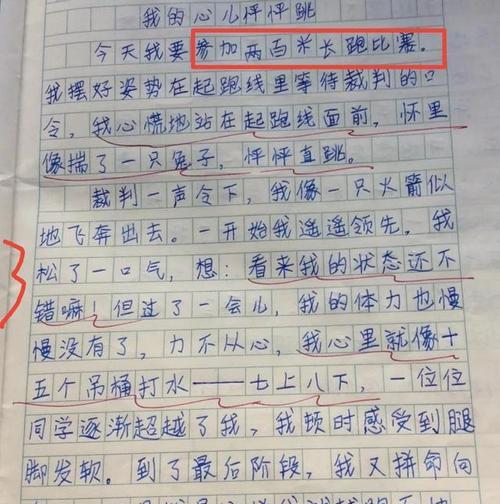 我的心儿怦怦跳
今天我要参加两百米长跑比赛。
我摆好姿势在起跑线里等待裁判的口
令，我心慌地站在起跑线面前，怀里
像揣了一只兔子，怦怦直跳。
裁判一声令下，我像一只火箭似
地飞奔出去。一开始我遥遥领先，我
松了一口气，想：看来我的状态还不
错嘛！但过了一会儿，我的体力也慢
慢没有了，力不从心，我心里就像十
五个吊桶打水——七上八下，一位位
同学逐渐超越了我，我顿时感受到腿
脚发软。到了最后阶段，我又拼命向